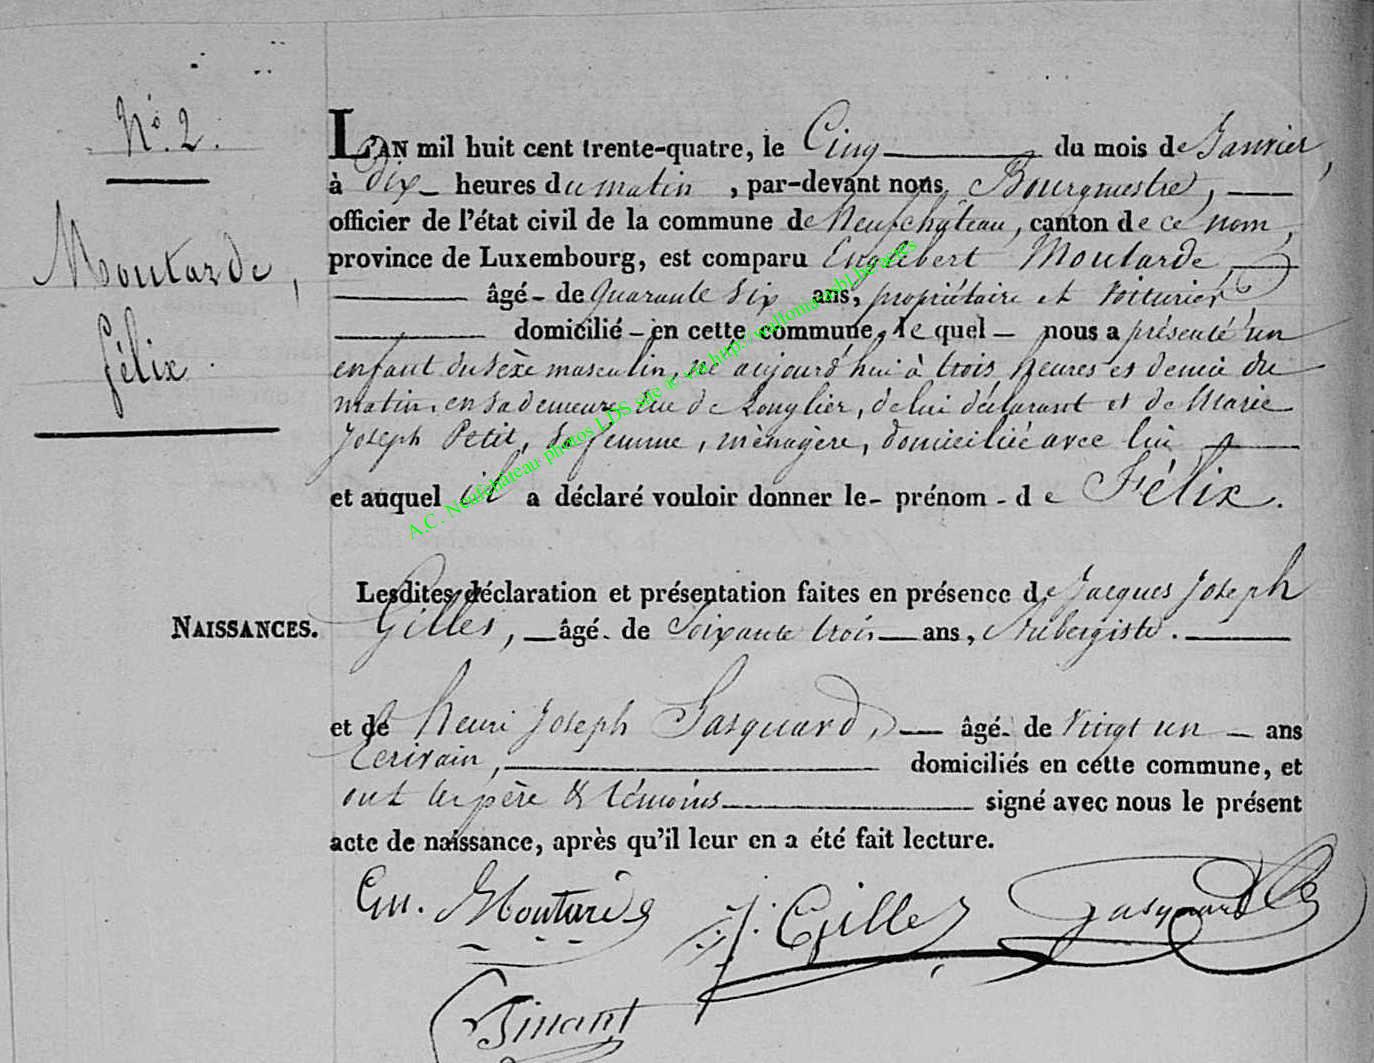 N.° 2.
Moutarde,
félix.
NAISSANCES.
L'AN mil huit cent trente-quatre, le Cinq du mois de Janvier,
à Dix heures du matin, par-devant nous, Bourgmestre,
officier de l'état civil de la commune de Neufchâteau, canton de ce nom,
province de Luxembourg, est comparu Englebert Moutarde,
âgé de Quarante Six ans, propriétaire et voiturier
domicilié en cette commune, le quel nous a présenté un
enfant du sèxe masculin, né aujourd'hui à trois heures et demie du
matin, en sa demeure, rue de Longlier, de lui déclarant et de Marie
Joseph Petit, sa femme, ménagère, domiciliée avec lui
et auquel il a déclaré vouloir donner le prénom de Félix.
Lesdites déclaration et présentation faites en présence de Jacques Joseph
Gilles, âgé de Soixante trois ans, Aubergiste.
et de henri Joseph Gasquard, âgé de vingt un ans
Ecrivain, domiciliés en cette commune, et
ont les père & témoins signé avec nous le présent
acte de naissance, après qu'il leur en a été fait lecture.
En. Moutarde J. Gilles Gasquard
Dinant
A.C. Neufchâteau photos LDS site